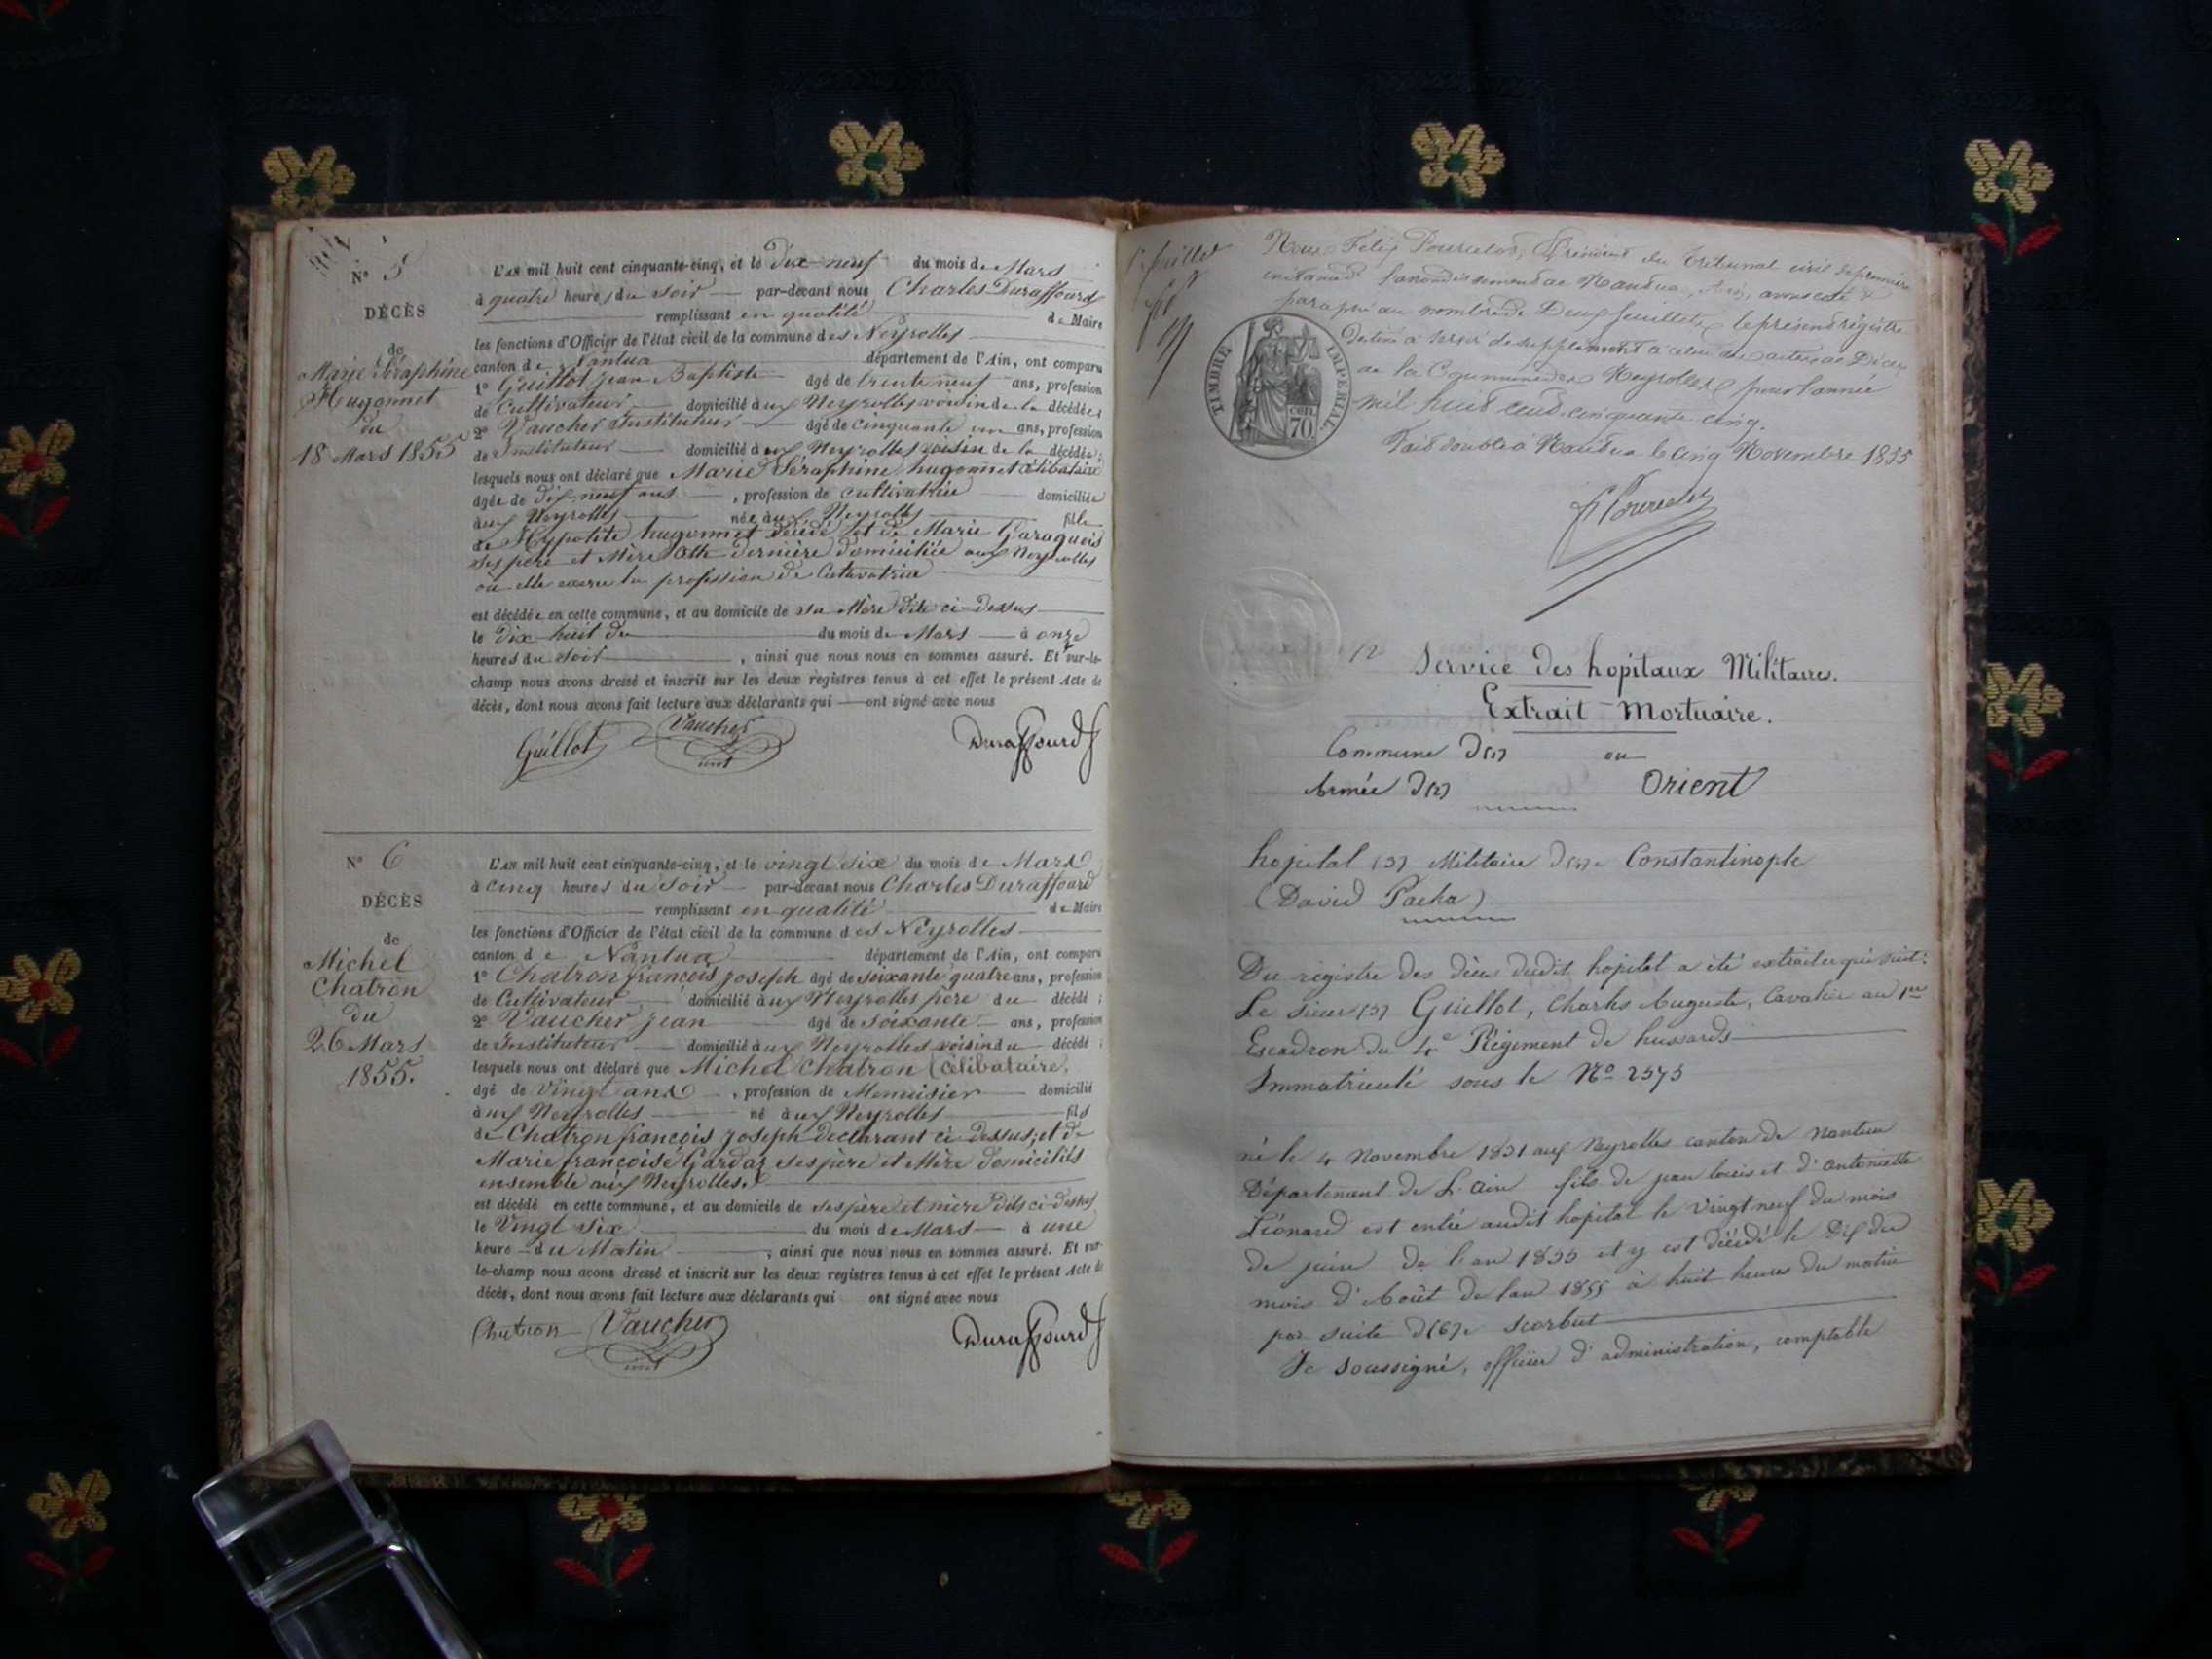 N° 5
DÉCÈS
de
Marie Séraphine
Hugonnet
du
18 Mars 1855
L'AN mil huit cent cinquante-cinq, et le dix-neuf du mois de Mars
à quatre heures du soir par-devant nous Charles Duraffourd
remplissant en qualité de Maire
les fonctions d'Officier de l'état civil de la commune des Neyrolles
canton de Nantua département de l'Ain, ont comparu
1° Guillot jean Baptiste âgé de trente neuf ans, profession
de Cultivateur domicilié aux Neyrolles voisin de la décédée;
2° Vaucher Instituteur âgé de cinquante ans, profession
de Instituteur domicilié aux Neyrolles voisin de la décédée;
lesquels nous ont déclaré que Marie Séraphine hugonnet célibataire
âgée de dix-neuf ans, profession de cultivatrice domiciliée
aux Neyrolles née aux Neyrolles fille
de Hypolite hugonnet décédé et de Marie
ses père et Mère cette dernière domiciliée aux Neyrolles
ou elle exerce la profession de Cultivatrice
est décédée en cette commune, et au domicile de sa Mère dite ci-dessus
le dix-huit du du mois de Mars à onze
heures du soir, ainsi que nous nous en sommes assuré. Et sur-le-
champ nous avons dressé et inscrit sur les deux registres tenus à cet effet le présent Acte de
décès, dont nous avons fait lecture aux déclarants qui ont signé avec nous
Guillot Vaucher Duraffourd
inst
N° 6
DÉCÈS
de
Michel
Chatron
du
26 Mars
1855.
L'AN mil huit cent cinquante-cinq, et le vingt six du mois de Mars
à cinq heures du soir par-devant nous Charles Duraffourd
remplissant en qualité de Maire
les fonctions d'Officier de l'état civil de la commune des Neyrolles
canton de Nantua département de l'Ain, ont comparu
1° Chatron françois joseph âgé de soixante quatre ans, profession
de Cultivateur domicilié aux Neyrolles père du décédé;
2° Vaucher jean âgé de soixante ans, profession
de Instituteur domicilié aux Neyrolles voisin du décédé;
lesquels nous ont déclaré que Michel Chatron (célibataire,
âgé de Vingt ans, profession de Menuisier domicilié
aux Neyrolles né aux Neyrolles fils
de Chatron françois joseph declarant ci-dessus; et de
Marie françoise Gardaz ses père et Mère domiciliés
ensemble aux Neyrolles.
est décédé en cette commune, et au domicile de ses père et mère dits ci-dessus
le Vingt six du mois de Mars à une
heure du Matin, ainsi que nous nous en sommes assuré. Et sur-
le-champ nous avons dressé et inscrit sur les deux registres tenus à cet effet le présent Acte de
décès, dont nous avons fait lecture aux déclarants qui ont signé avec nous
Chatron Vaucher Duraffourd
inst
Nous Félix Président du Tribunal civil de première
instance l'arrondissement de Nantua, avons coté &
paraphé au nombre de Deux feuillets le présent régistre
destiné à servir de supplément à celui des actes de Décès
de la Commune des Neyrolles pour l'année
mil huit cent cinquante cinq.
Fait double à Nantua le cinq Novembre 1855
TIMBRE IMPÉRIAL
70
Service des hopitaux Militaires.
Extrait Mortuaire.
Commune d(1) ou
Armée d(2) Orient
hopital (3) Militaire d(4)e Constantinople
(David Pacha)
Du régistre des décès dudit hopital a été extrait ce qui suit:
Le sieur (5) Guillot, Charles Auguste, Cavalier au 1er
Escadron du 4e Régiment de hussards
Immatriculé sous le No 2575
né le 4 Novembre 1831 aux Neyrolles canton de Nantua
Département de L'ain fils de jean louis et d'Antoinette
Léonard est entré audit hopital le vingt neuf du mois
de juin de l'an 1855 et y est décédé le Dix du
mois d'Août de l'an 1855 à huit heures du matin
par suite d(6)e scorbut
Je soussigné, officier d'administration, comptable